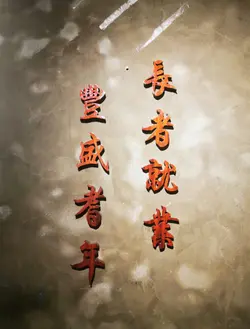 長者就業
豐盛耆年